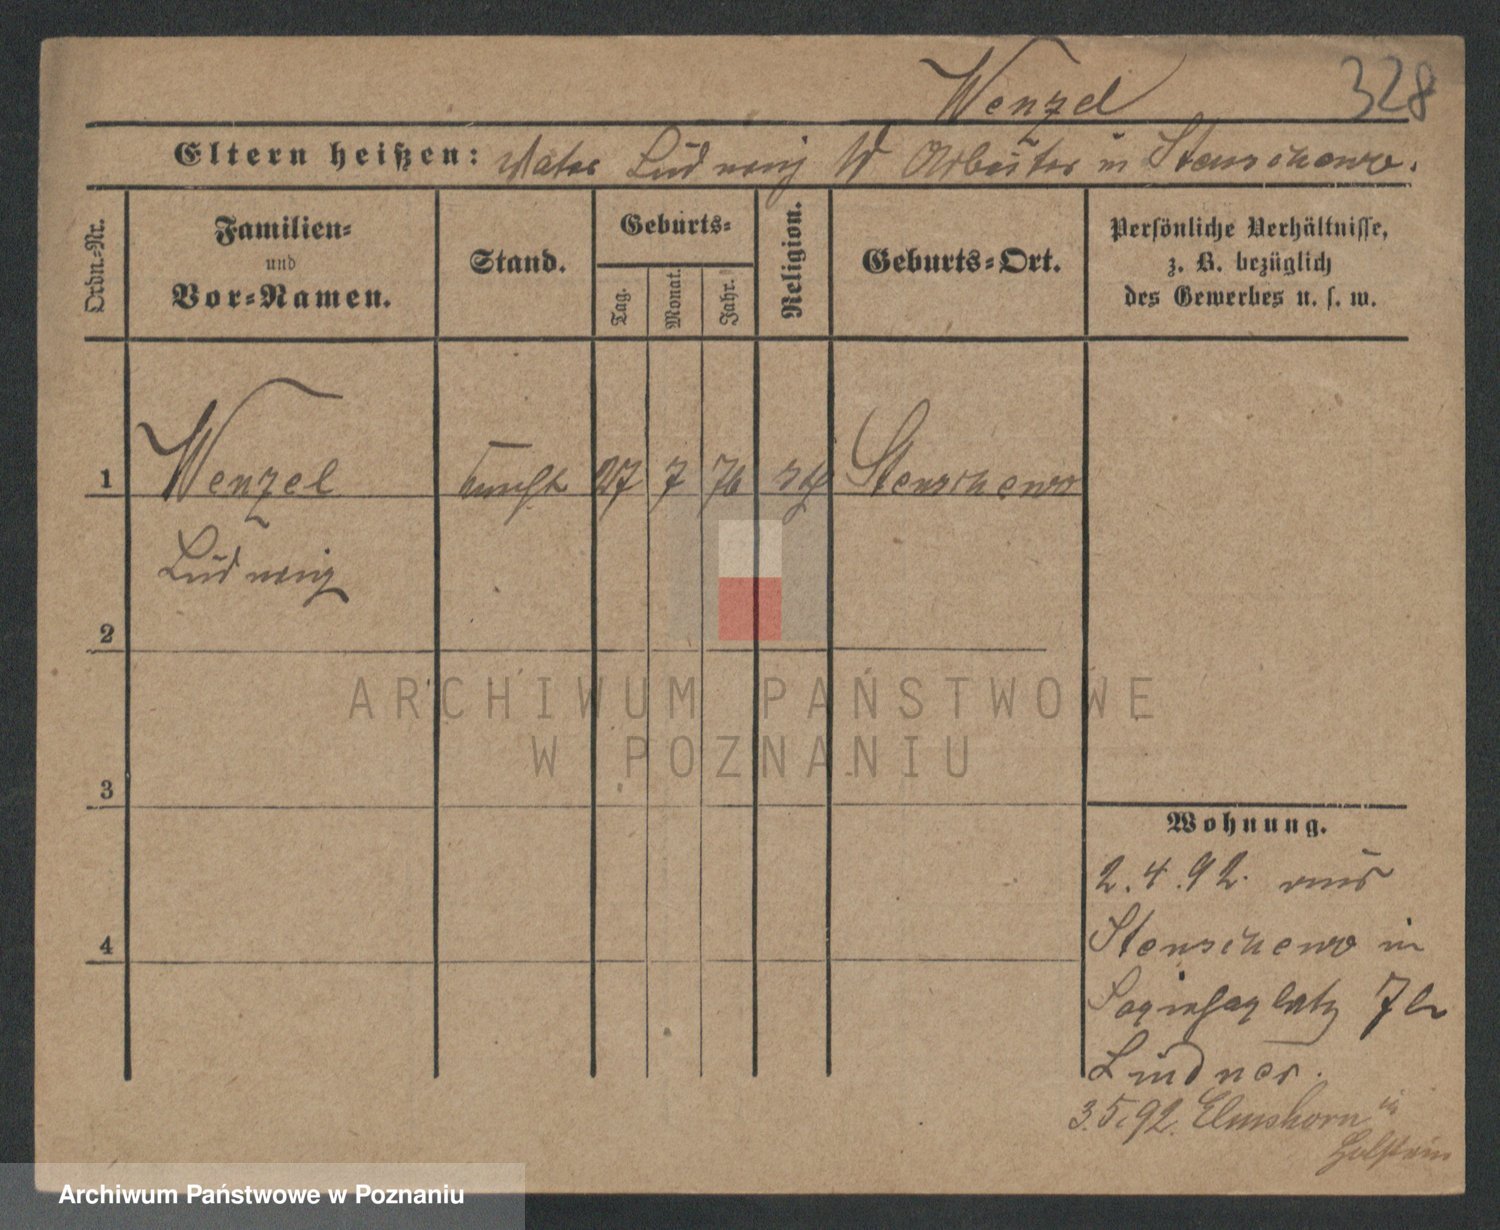 Wenzel
328
Eltern heißen: Vater Ludwig W Arbeiter in Stenschewo.
Ordn.-Nr.
Familien-
und
Vor-Namen.
Stand.
Geburts-
Tag.
Monat.
Jahr.
Religion.
Geburts-Ort.
Persönliche Verhältnisse,
z. B. bezüglich
des Gewerbes u. s. w.
1 Wenzel 27 7 76 Stenschewo
Ludwig
2
3
4
Wohnung.
2.4.92. aus
Stenschewo in
Sapiehaplatz 7 b
Lindner.
3.5.92. Elmshorn in
Holstein
ARCHIWUM PAŃSTWOWE
W POZNANIU
Archiwum Państwowe w Poznaniu